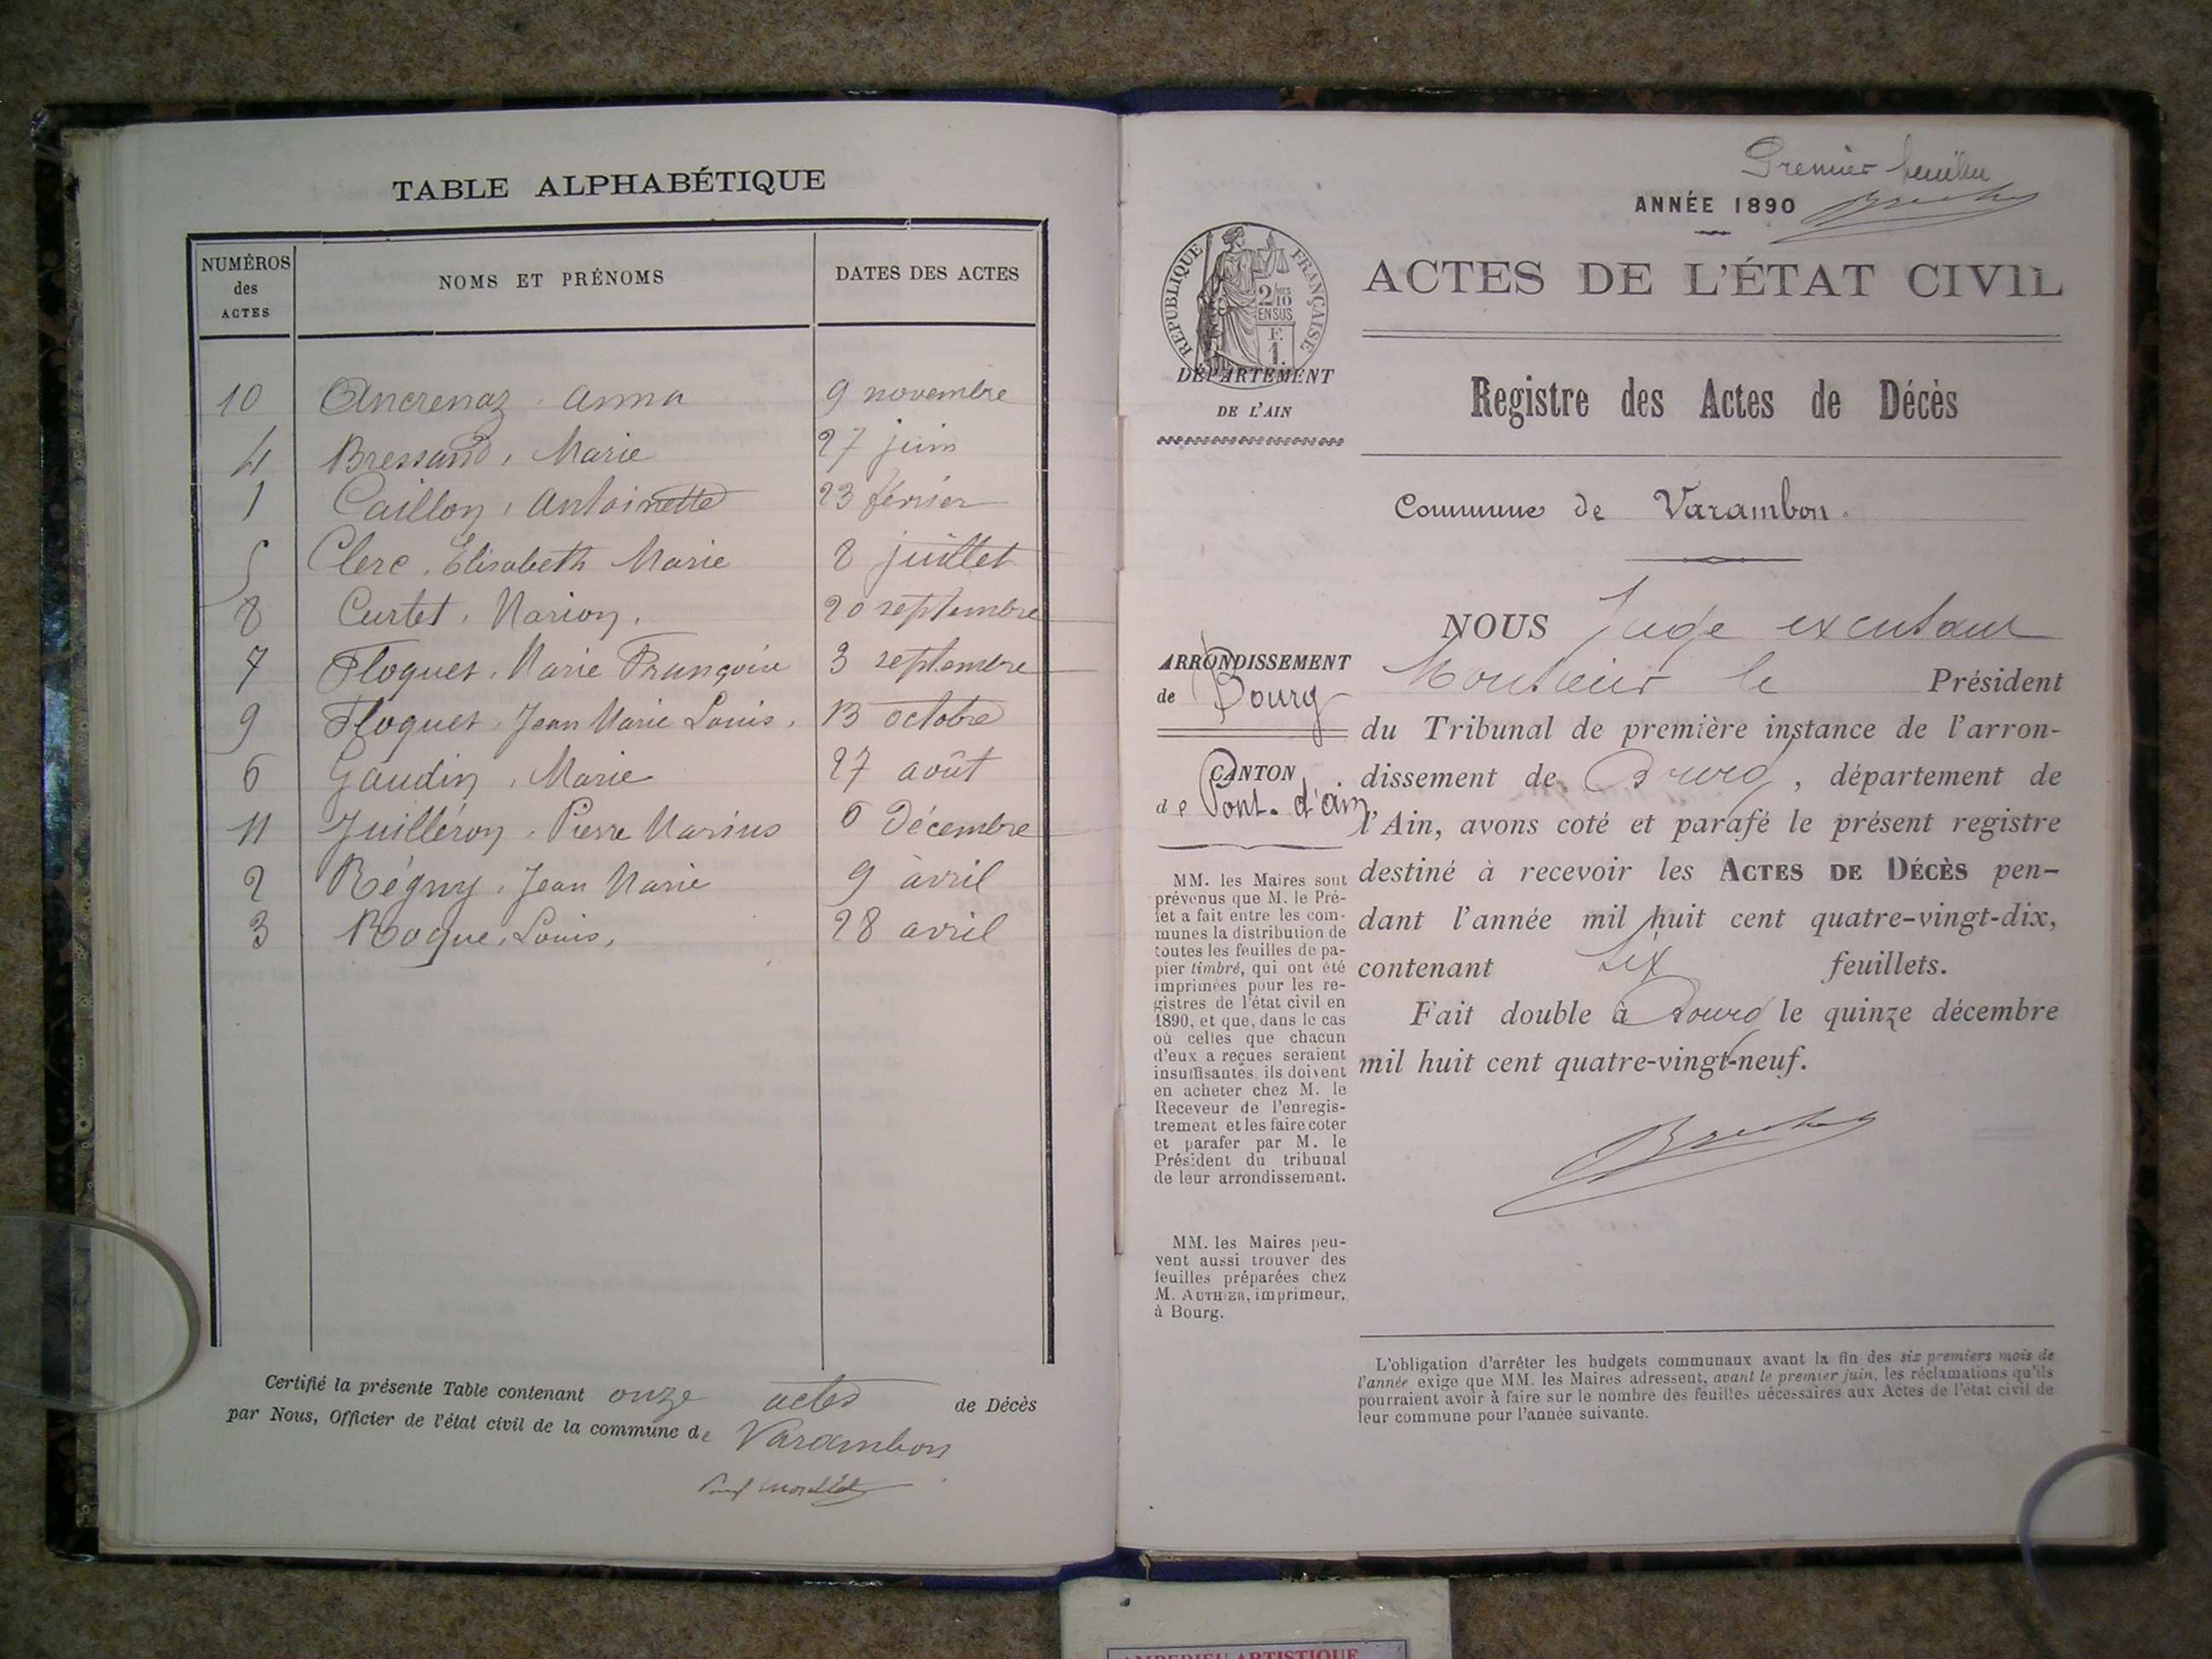 TABLE ALPHABÉTIQUE
NUMÉROS des ACTES
NOMS ET PRÉNOMS
DATES DES ACTES
10 Ancrenaz Anna 9 novembre
4 Bressand, Marie 27 juin
1 Caillon, Antoinette 23 février
5 Clerc, Elisabeth Marie 8 juillet
8 Curtet, Marion, 20 septembre
7 Floquet, Marie Françoise 3 septembre
9 Floquet, Jean Marie Louis, 13 octobre
6 Gaudin, Marie 27 août
11 Juilléron, Pierre Marius 6 Décembre
2 Régny, Jean Marie 9 avril
3 Roque, Louis, 28 avril
Certifié la présente Table contenant onze actes de Décès
par Nous, Officier de l'état civil de la commune de Varambon
Premier feuillet
ANNÉE 1890
RÉPUBLIQUE FRANÇAISE
2/10
EN SUS
F.
1.
DÉPARTEMENT
DE L'AIN
ACTES DE L'ÉTAT CIVIL
Registre des Actes de Décès
Commune de Varambon.
ARRONDISSEMENT
de Bourg
CANTON
de Pont-d'ain
MM. les Maires sont
prévenus que M. le Pré-
fet a fait entre les com-
munes la distribution de
toutes les feuilles de pa-
pier timbré, qui ont été
imprimées pour les re-
gistres de l'état civil en
1890, et que, dans le cas
où celles que chacun
d'eux a reçues seraient
insuffisantes, ils doivent
en acheter chez M. le
Receveur de l'enregis-
trement et les faire coter
et parafer par M. le
Président du tribunal
de leur arrondissement.
MM. les Maires peu-
vent aussi trouver des
feuilles préparées chez
M. AUTHIER, imprimeur,
à Bourg.
NOUS Juge excusant
Monsieur le Président
du Tribunal de première instance de l'arron-
dissement de Bourg, département de
l'Ain, avons coté et parafé le présent registre
destiné à recevoir les ACTES DE DÉCÈS pen-
dant l'année mil huit cent quatre-vingt-dix,
contenant six feuillets.
Fait double à Bourg le quinze décembre
mil huit cent quatre-vingt-neuf.
L'obligation d'arrêter les budgets communaux avant la fin des six premiers mois de
l'année exige que MM. les Maires adressent, avant le premier juin, les réclamations qu'ils
pourraient avoir à faire sur le nombre des feuilles nécessaires aux Actes de l'état civil de
leur commune pour l'année suivante.
AMBERIEU ARTISTIQUE